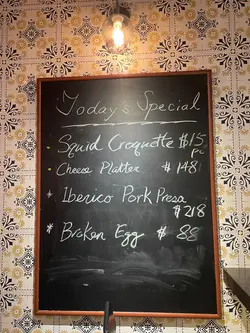 Today's Special
Squid Croquette $15
pc
Cheese Platter $148
* Iberico Pork Presa
$218
* Broken Egg $88